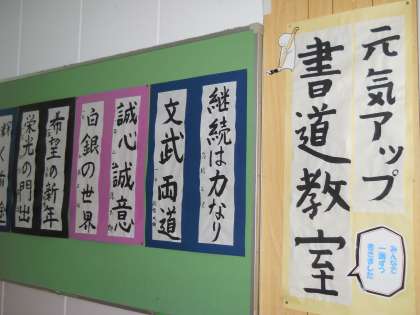 元気アップ
書道教室
みんなで
継続は力なり
文武両道
誠心誠意
白銀の世界
希望の新年
栄光の門出